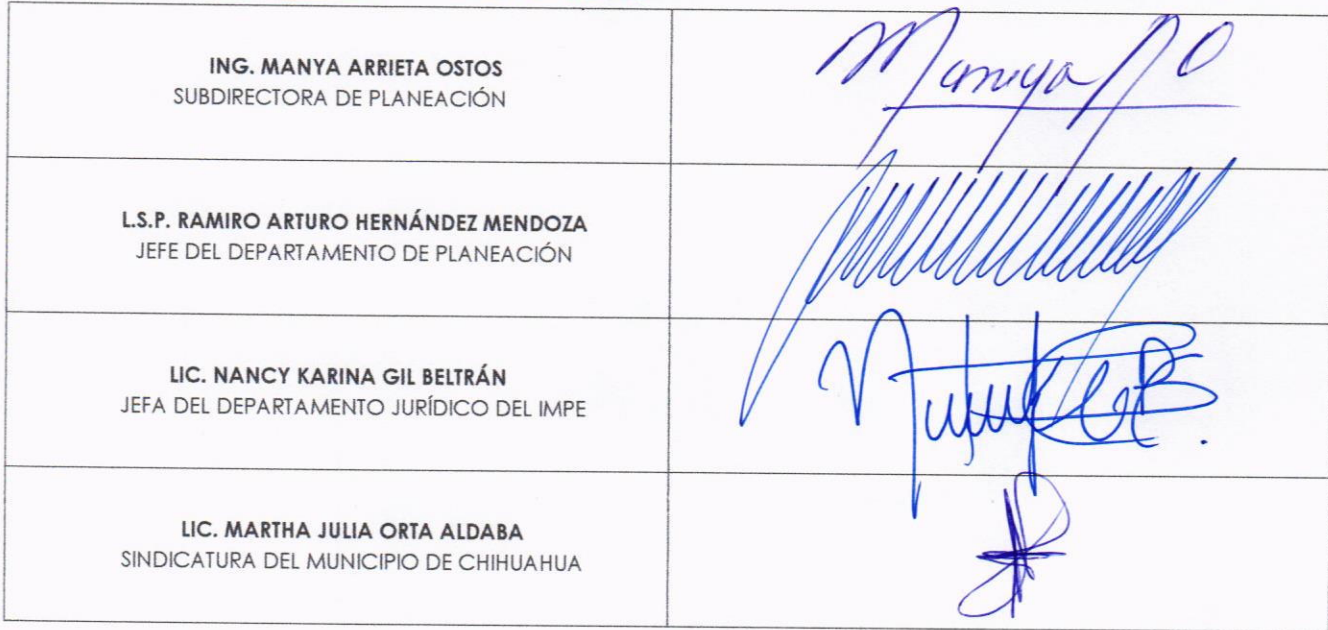 ING. MANYA ARRIETA OSTOS
SUBDIRECTORA DE PLANEACIÓN
Manya
L.S.P. RAMIRO ARTURO HERNÁNDEZ MENDOZA
JEFE DEL DEPARTAMENTO DE PLANEACIÓN
LIC. NANCY KARINA GIL BELTRÁN
JEFA DEL DEPARTAMENTO JURÍDICO DEL IMPE
LIC. MARTHA JULIA ORTA ALDABA
SINDICATURA DEL MUNICIPIO DE CHIHUAHUA